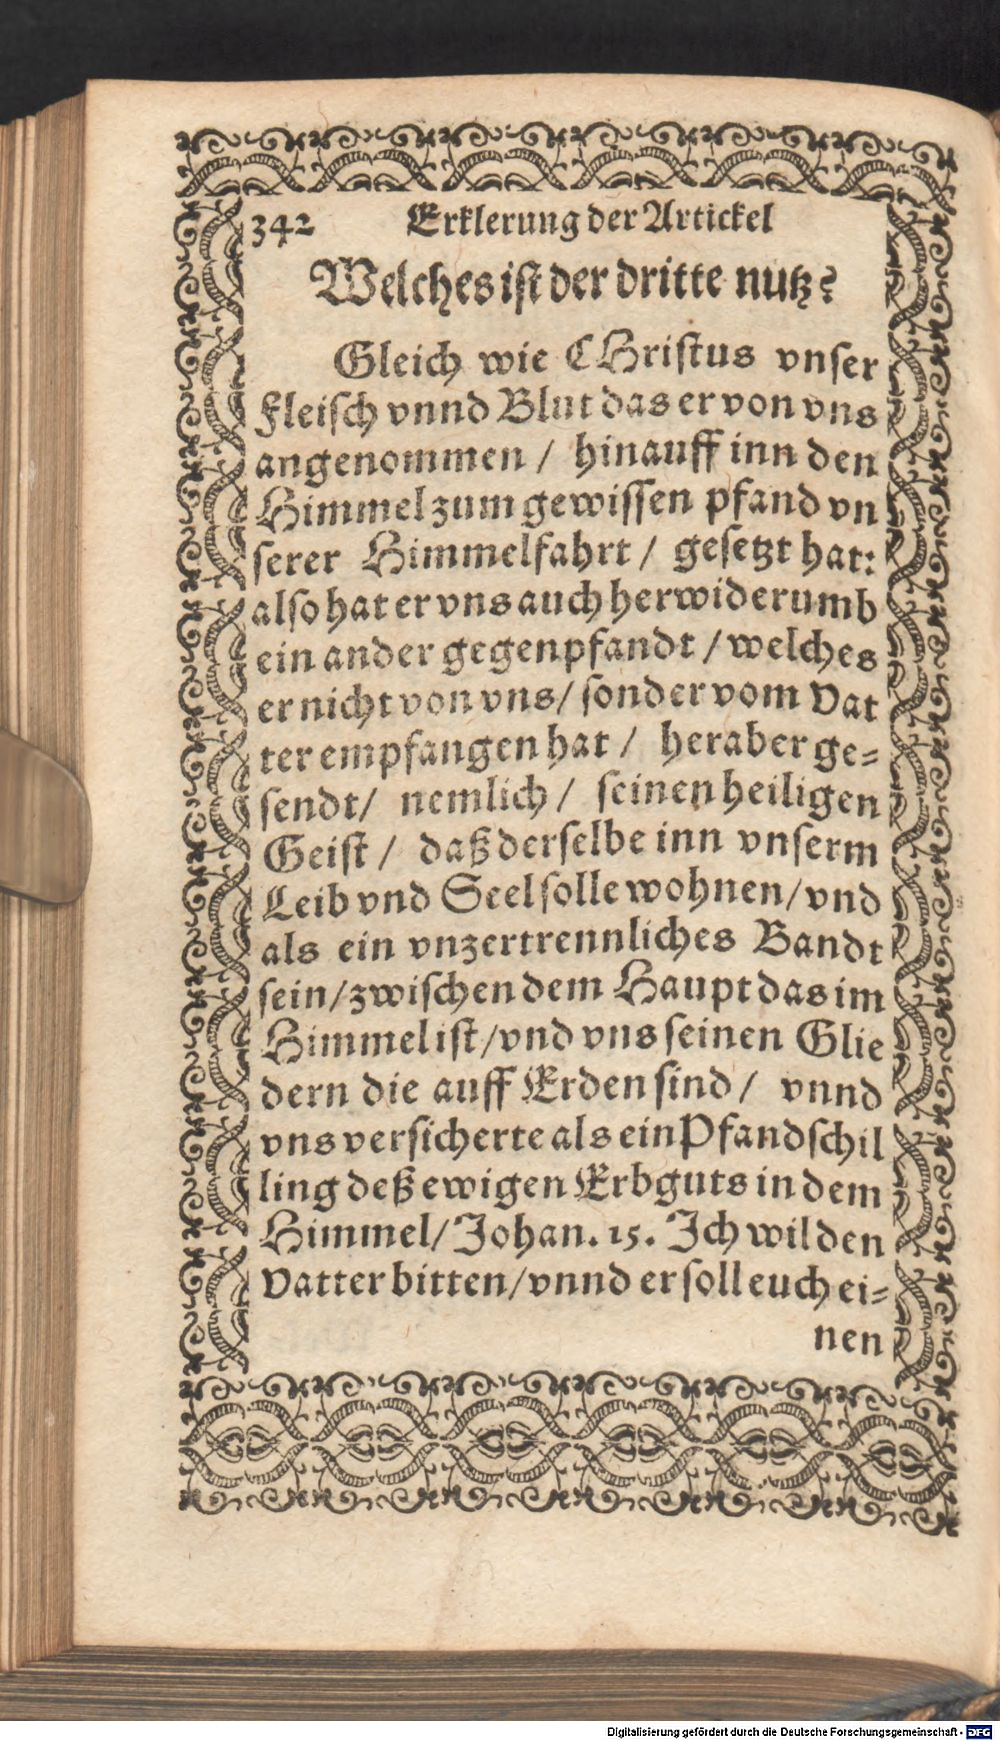 342 Erklerung der Artickel
Welches ist der dritte nutz?
Gleich wie CHristus vnser
Fleisch vnnd Blut das er von vns
angenommen / hinauff inn den
Himmel zum gewissen pfand vn
serer Himmelfahrt / gesetzt hat:
also hat er vns auch herwiderumb
ein ander gegenpfandt / welches
er nicht von vns / sonder vom Vat
ter empfangen hat / heraber ge-
sendt / nemlich / seinen heiligen
Geist / daß derselbe inn vnserm
Leib vnd Seel solle wohnen / vnd
als ein vnzertrennliches Bandt
sein / zwischen dem Haupt das im
Himmel ist / vnd vns seinen Glie
dern die auff Erden sind / vnnd
vns versicherte als ein Pfandschil
ling deß ewigen Erbguts in dem
Himmel / Johan. 15. Ich wil den
Vatter bitten / vnnd er soll euch ei-
nen
Digitalisierung gefördert durch die Deutsche Forschungsgemeinschaft - DFG